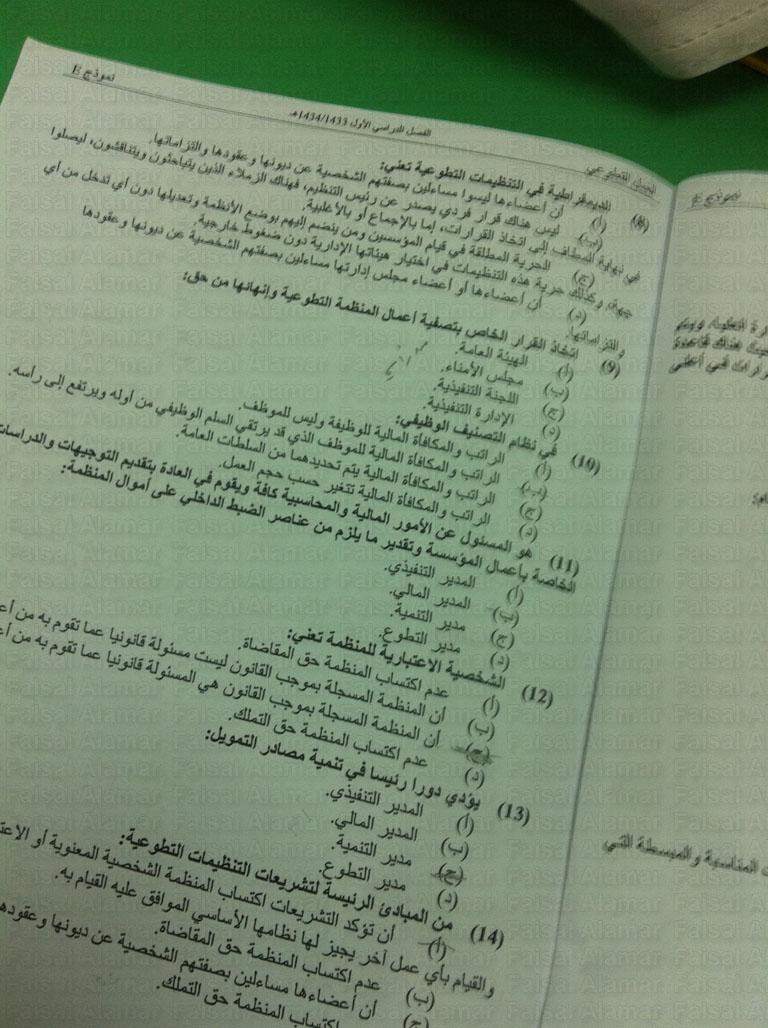 العمل التطوعي
الفصل الدراسي الأول 1434/1433هـ
نموذج E
(8) الديمقراطية في التنظيمات التطوعية تعني:
(أ) أن أعضاءها ليسوا مساءلين بصفتهم الشخصية عن ديونها وعقودها والتزاماتها.
(ب) ليس هناك قرار فردي يصدر عن رئيس التنظيم، فهناك الزملاء الذين يتباحثون ويتناقشون، ليصلوا
في نهاية المطاف إلى اتخاذ القرارات، إما بالإجماع أو بالأغلبية.
(ج) الحرية المطلقة في قيام المؤسسين ومن ينضم إليهم بوضع الأنظمة وتعديلها دون أي تدخل من أي
جهة، وكذلك حرية هذه التنظيمات في اختيار هيئاتها الإدارية دون ضغوط خارجية.
(د) أن أعضاءها أو أعضاء مجلس إدارتها مساءلين بصفتهم الشخصية عن ديونها وعقودها
والتزاماتها.
(9) اتخاذ القرار الخاص بتصفية أعمال المنظمة التطوعية وإنهائها من حق:
(أ) الهيئة العامة.
(ب) مجلس الأمناء.
(ج) اللجنة التنفيذية.
(د) الإدارة التنفيذية.
(10) في نظام التصنيف الوظيفي:
(أ) الراتب والمكافأة المالية للوظيفة وليس للموظف.
(ب) الراتب والمكافأة المالية للموظف الذي قد يرتقي السلم الوظيفي من أوله ويرتفع إلى رأسه.
(ج) الراتب والمكافأة المالية يتم تحديدهما من السلطات العامة.
(د) الراتب والمكافأة المالية تتغير حسب حجم العمل.
(11) هو المسئول عن الأمور المالية والمحاسبية كافة ويقوم في العادة بتقديم التوجيهات والدراسات
الخاصة بأعمال المؤسسة وتقدير ما يلزم من عناصر الضبط الداخلي على أموال المنظمة:
(أ) المدير التنفيذي.
(ب) المدير المالي.
(ج) مدير التنمية.
(د) مدير التطوع.
(12) الشخصية الاعتبارية للمنظمة تعني:
(أ) عدم اكتساب المنظمة حق المقاضاة.
(ب) أن المنظمة المسجلة بموجب القانون ليست مسئولة قانونيا عما تقوم به من
(ج) أن المنظمة المسجلة بموجب القانون هي المسئولة قانونيا عما تقوم به من
(د) عدم اكتساب المنظمة حق التملك.
(13) يؤدي دورا رئيسا في تنمية مصادر التمويل:
(أ) المدير التنفيذي.
(ب) المدير المالي.
(ج) مدير التنمية.
(د) مدير التطوع.
(14) من المبادئ الرئيسة لتشريعات التنظيمات التطوعية:
(أ) أن تؤكد التشريعات اكتساب المنظمة الشخصية المعنوية أو
والقيام بأي عمل آخر يجيز لها نظامها الأساسي الموافق عليه القيام به.
(ب) عدم اكتساب المنظمة حق المقاضاة.
(ج) أن أعضاءها مساءلين بصفتهم الشخصية عن ديونها
اكتساب المنظمة حق التملك.
نموذج E
المناسبة والمبسطة التي
Faisal Alamar